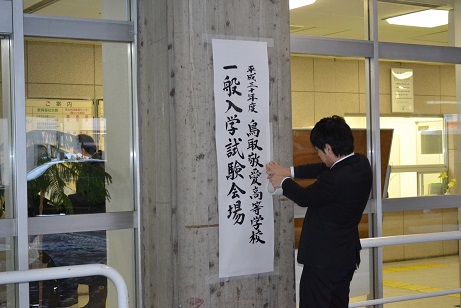 平成三十年度 鳥取敬愛高等学校
一般入学試験会場
ご案内